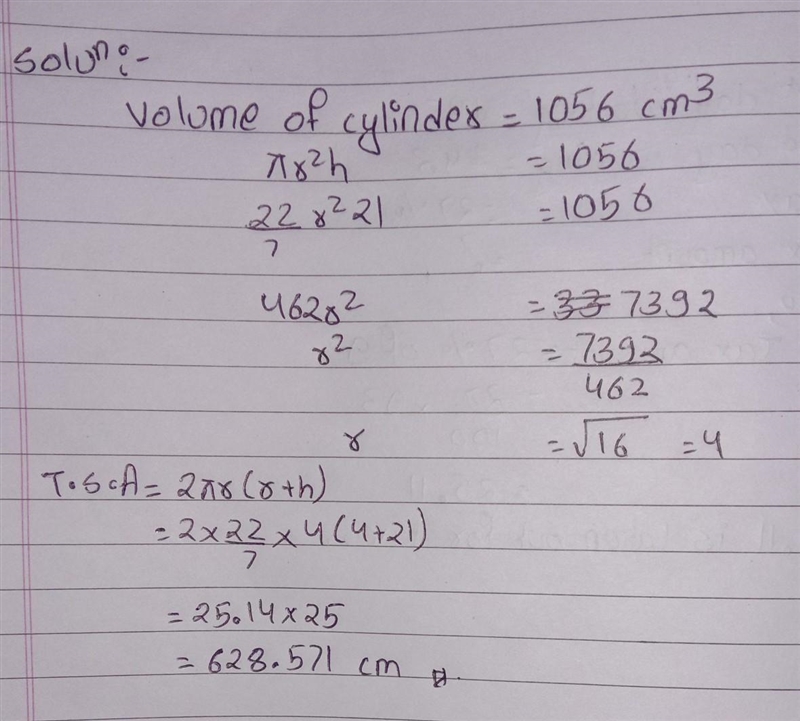 Solun:-
Volume of cylinder = 1056 cm³
πr²h = 1056
22/7 r² 21 = 1056
462r² = 7392
r² = 7392/462
r = √16 = 4
T.S.A = 2πr(r+h)
= 2×22/7×4(4+21)
= 25.14×25
= 628.571 cm